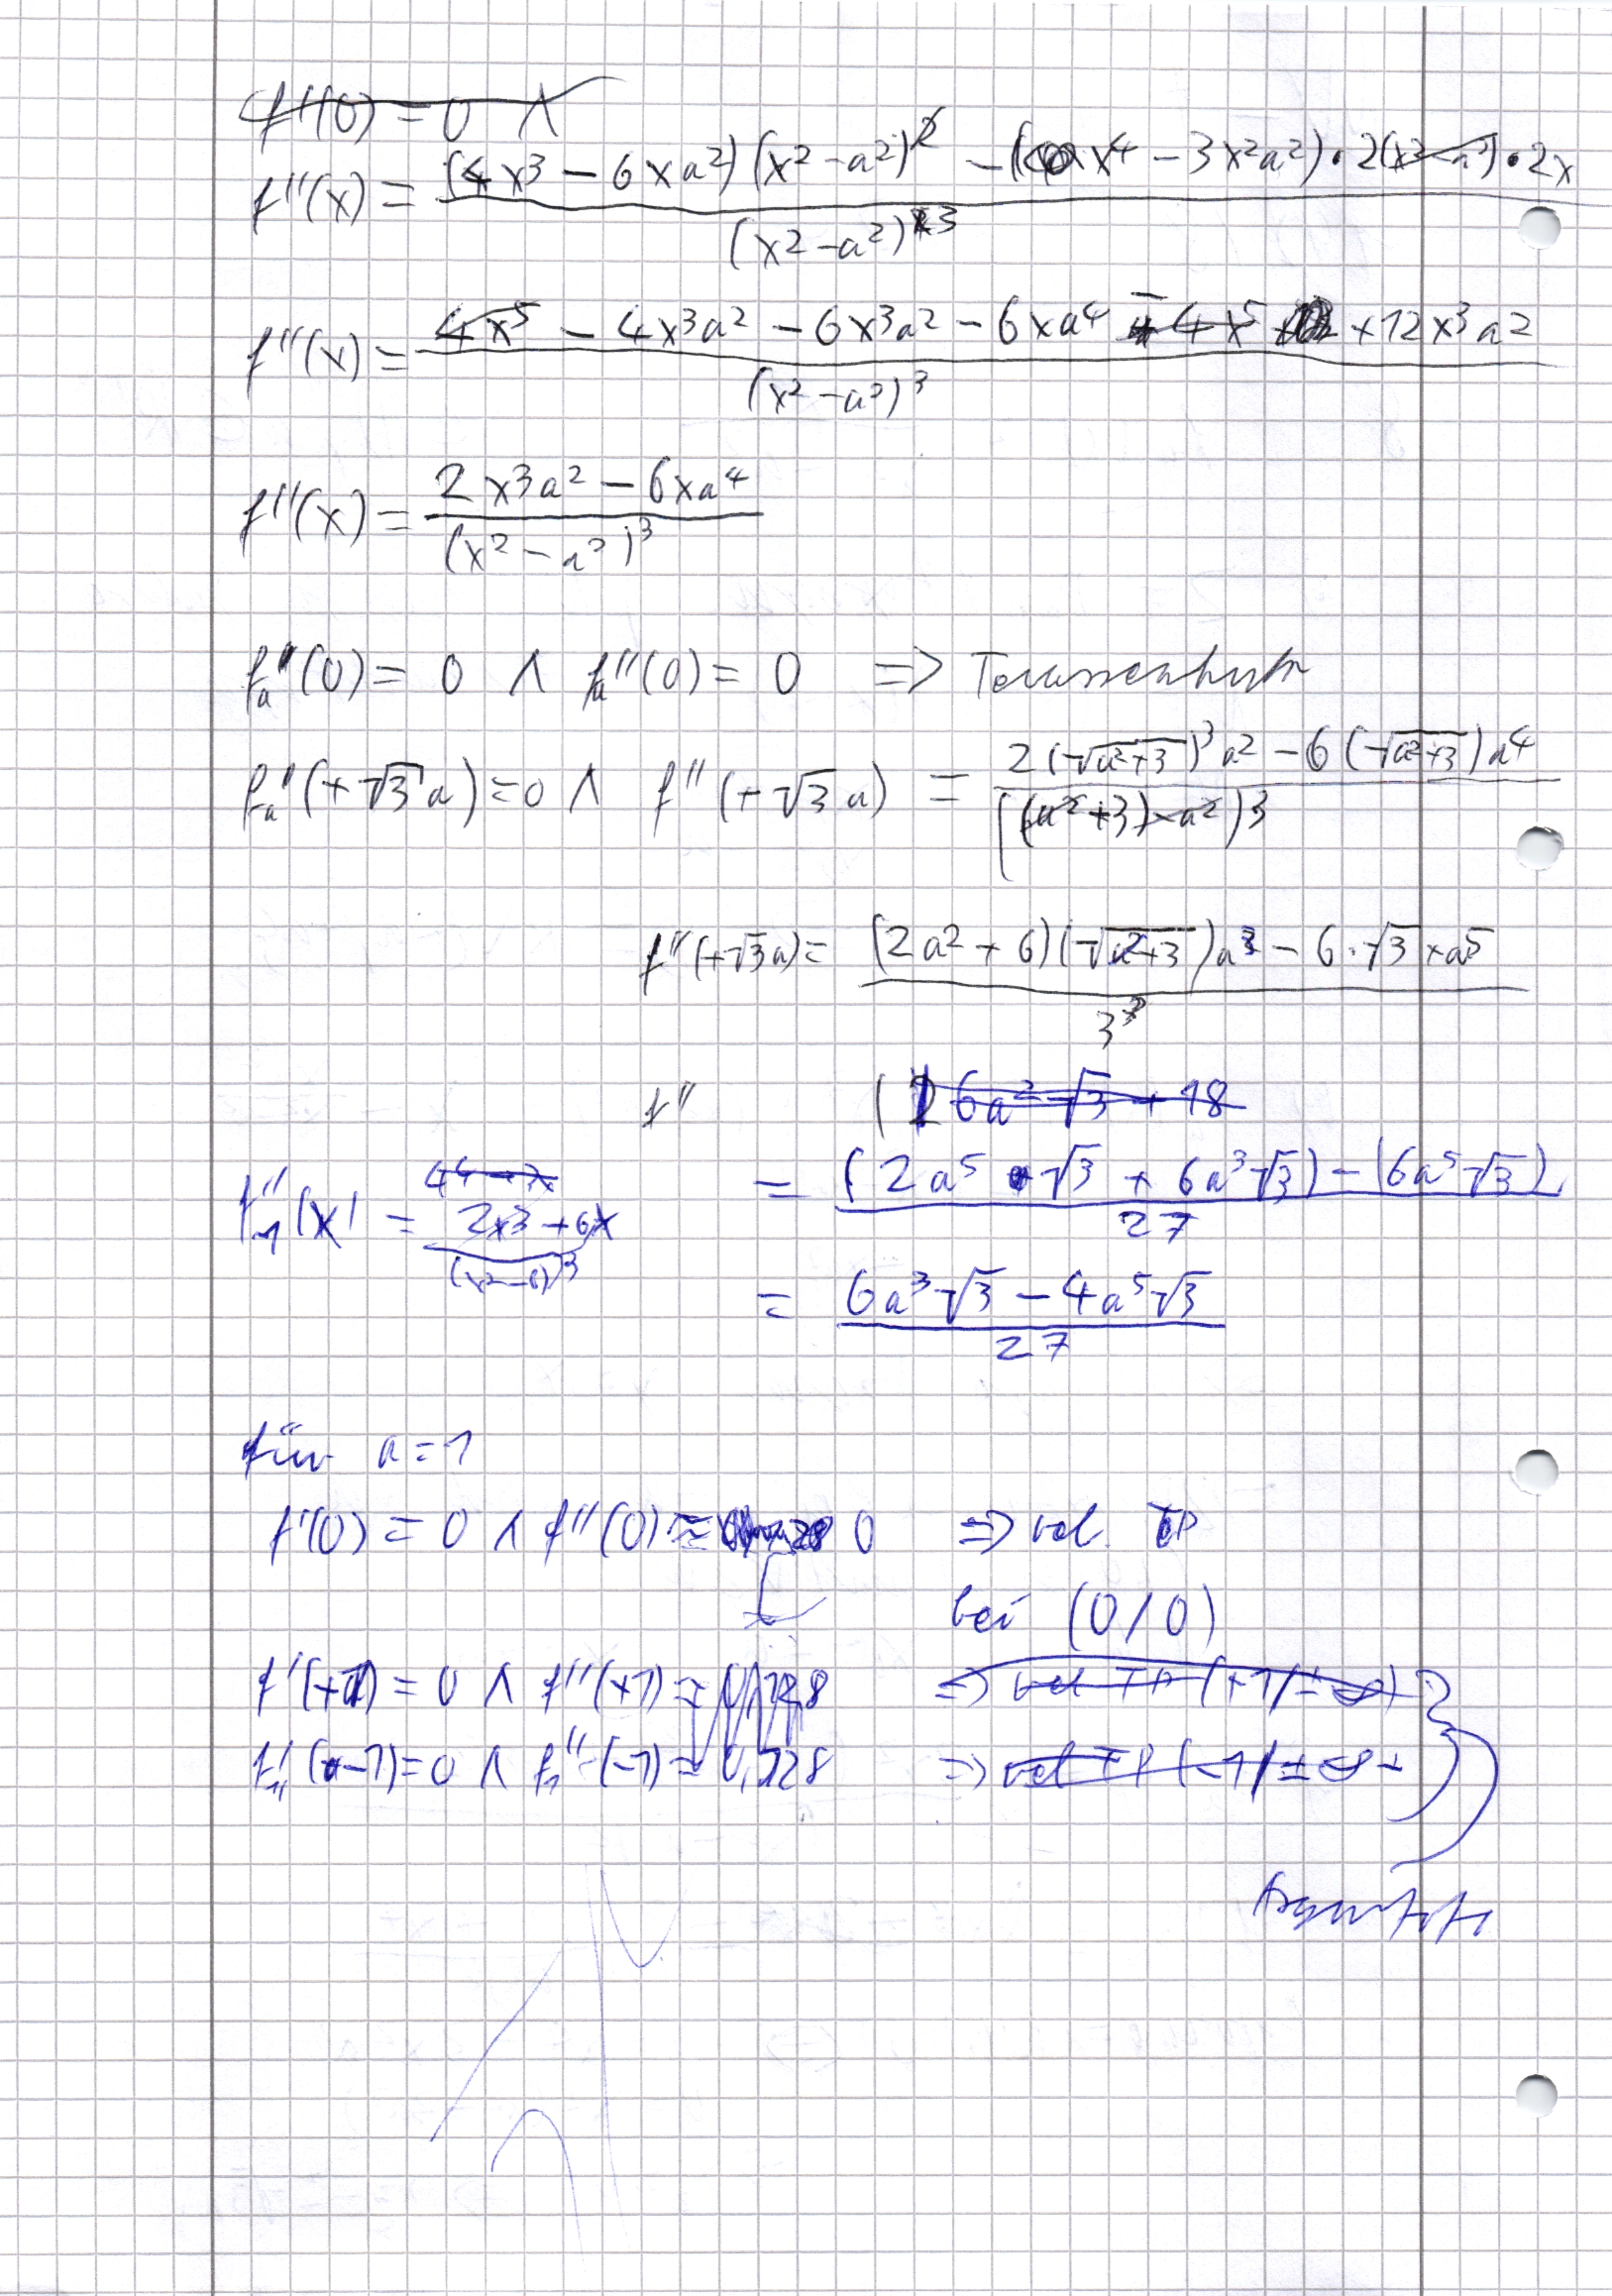 f'(0) = 0 ∧
f''(x) = ((4x³ − 6xa²)(x² − a²)² − (x⁴ − 3x²a²) · 2(x² − a²) · 2x) / (x² − a²)³
f''(x) = (4x⁵ − 4x³a² − 6x³a² − 6xa⁴ − 4x⁵ + 12x³a²) / (x² − a²)³
f''(x) = (2x³a² − 6xa⁴) / (x² − a²)³
fₐ''(0) = 0 ∧ fₐ''(0) = 0 =>
fₐ''(+√3 a) = 0 ∧ f''(+√3 a) = (2(√(a²+3))³a² − 6(√(a²+3))a⁴) / ((a²+3) − a²)³
f''(+√3a) = ((2a² + 6)(√(a²+3))a³ − 6·√3 × a⁵) / 3³
f'' ( 6a²√3 + 18
= ((2a⁵ · √3 + 6a³√3) − (6a⁵√3)) / 27
f₁''(x) = (2x³ + 6x) / 
= (6a³√3 − 4a⁵√3) / 27
für a = 1
f'(0) = 0 ∧ f''(0) = 0 => rel. TP
bei (0/0)
f'(+1) = 0 ∧ f''(+1) = 0,728 => rel TP (+1/±∞)
f₁'(−1) = 0 ∧ f₁''(−1) = 0,728 => rel TP (−1/±∞